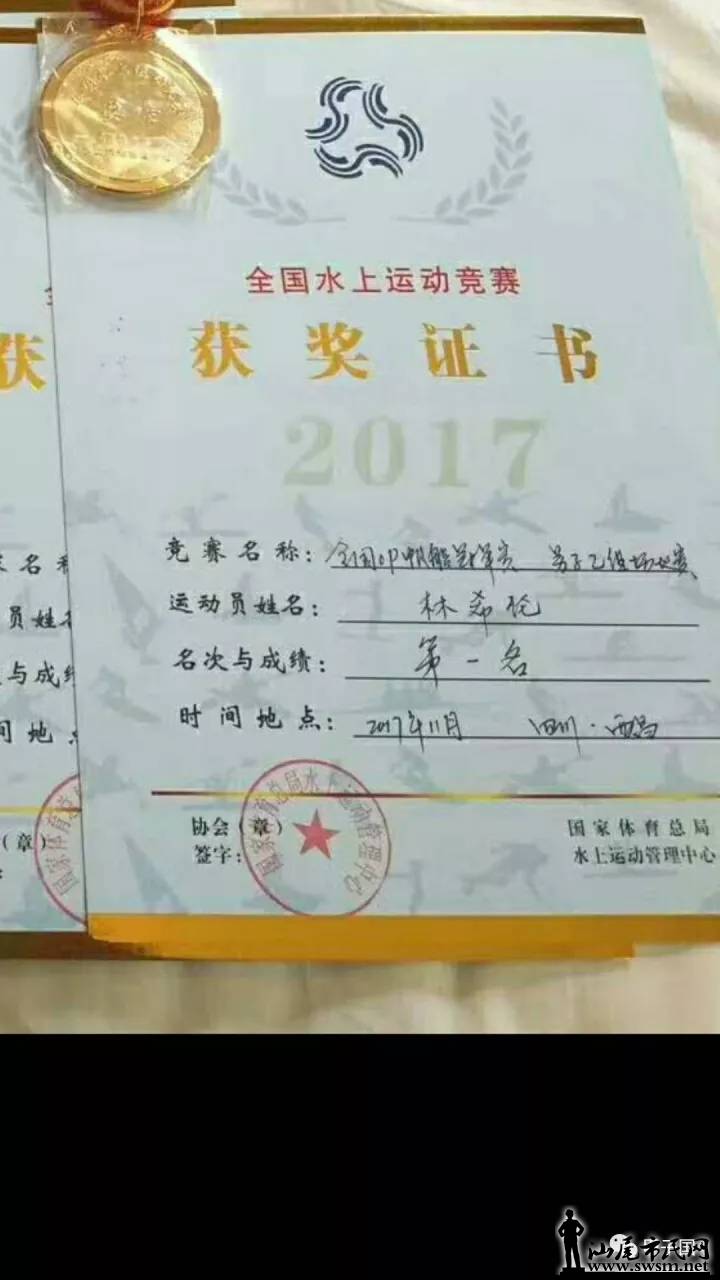 全国水上运动竞赛
获奖证书
2017
竞赛名称：全国OP帆船冠军赛 男子乙组场地赛
运动员姓名：林希伦
名次与成绩：第一名
时间地点：2017年11月 四川·西昌
协会（章）
签字：
国家体育总局
水上运动管理中心
国家体育总局水上运动管理中心
获
名称
员姓名
与成绩
间地点
（章）
国家体育总
汕尾市民网
www.swsm.net